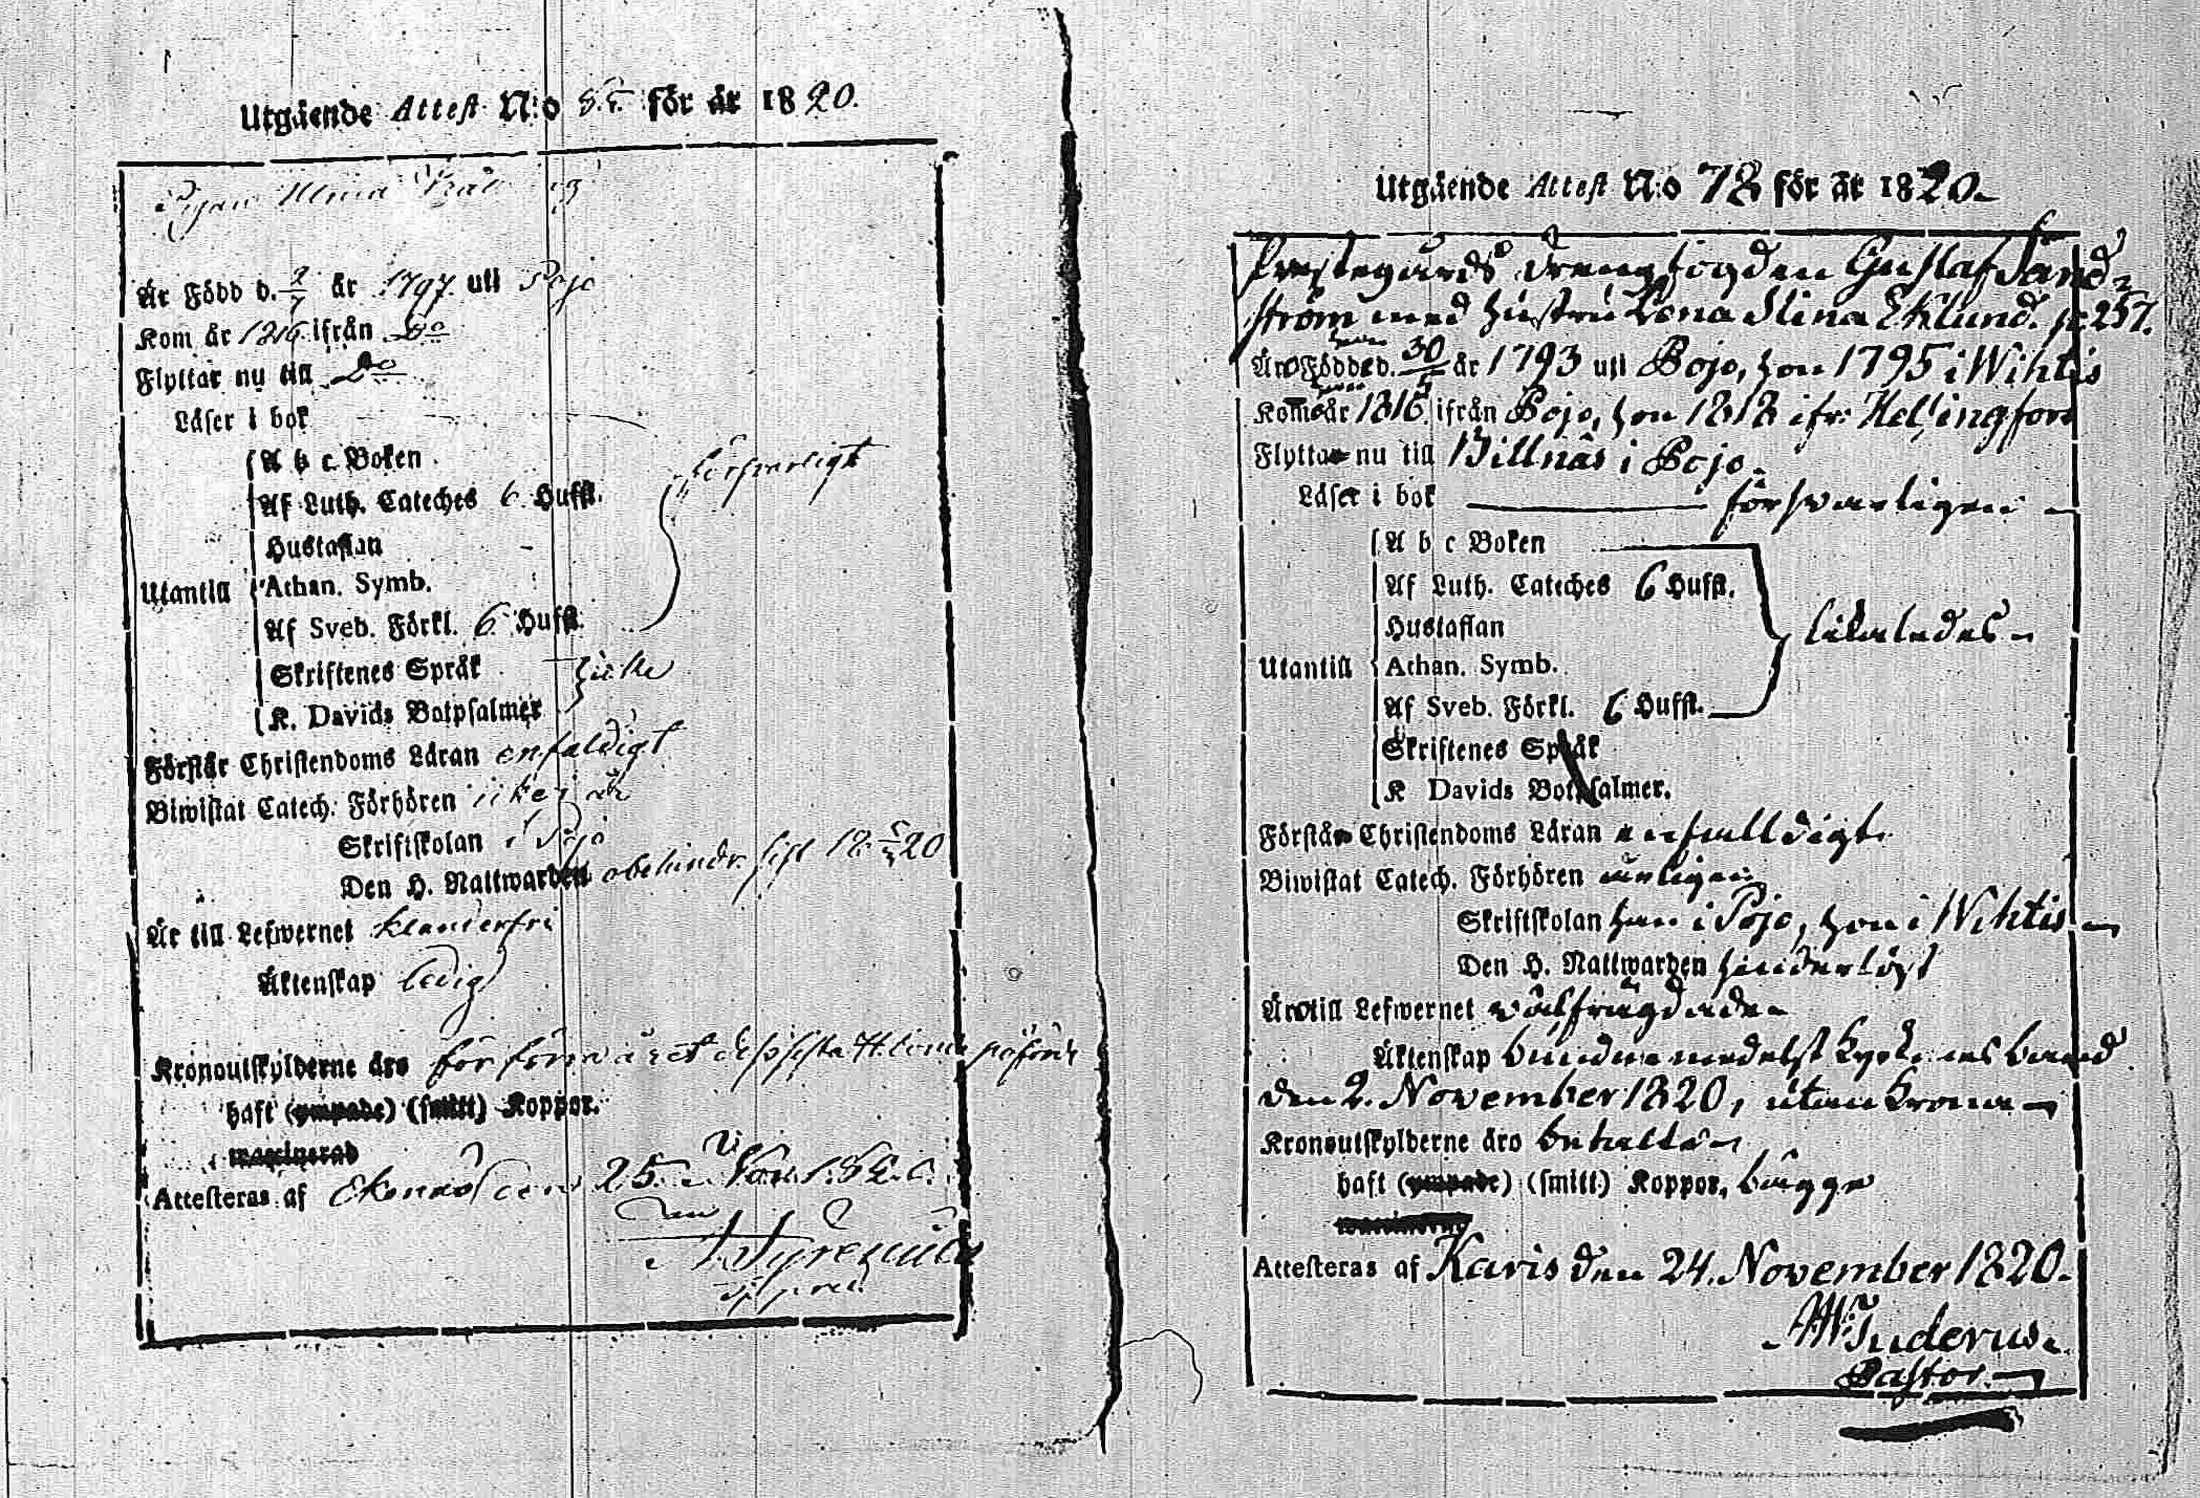 Utgående Attest N:o för år 1820.
Pigan Ulrica
Är Född d. 2/7 år 1797. uti Pojo
Kom år 1816 ifrån Do
Flyttar nu till Do
Läser i bok
A b c Boken
Af Luth. Cateches 6 Hufst.
försvarligt
Hustaflan
Utantill Athan. Symb.
Af Sveb. Förkl. 6 Hufst.
Skriftenes Språk icke
K. Davids Botpsalmer
Förstår Christendoms Läran enfaldigt
Biwistat Catech. Förhören
Skriftskolan i Pojo
Den H. Nattwarden obehindr. sist 18 20
Är till Lefwernet klanderfri
Äktenskap ledig
Kronoutskylderne äro för förra året
haft (ympade) (smitt) Koppor.
waccinerad
Attesteras af Ekenäs den 25. Nov. 1820.
Utgående Attest N:o 78 för år 1820.
Prestegårds Drengfogden Gustaf Sand-
ström med hustru Lena Stina Eklund. p. 257.
Äro Födde d. han 30/5 år 1793 uti Pojo, hon 1795 i Wihtis
Kommo år han 1816 ifrån Pojo, hon 1818 ifr: Helsingfors
Flytta nu till Billnäs i Pojo.
Läser i bok försvarligen
A b c Boken
Af Luth. Cateches 6 Hufst.
Hustaflan likaledes
Utantill Athan. Symb.
Af Sveb. Förkl. 6 Hufst.
Skriftenes Språk
K Davids Botpsalmer.
Förstå Christendoms Läran enfalldigt
Biwistat Catech. Förhören årligen
Skriftskolan han i Pojo, hon i Wihtis
Den H. Nattwarden hinderlöst
Äro till Lefwernet wälfrägdade
Äktenskap bundne medelst Kyrkones band
den 2. November 1820, utan Krona
Kronoutskylderne äro betallte
haft (ympade) (smitt.) Koppor, bägge
Attesteras af Karis den 24. November 1820.
Juderus.
Pastor.